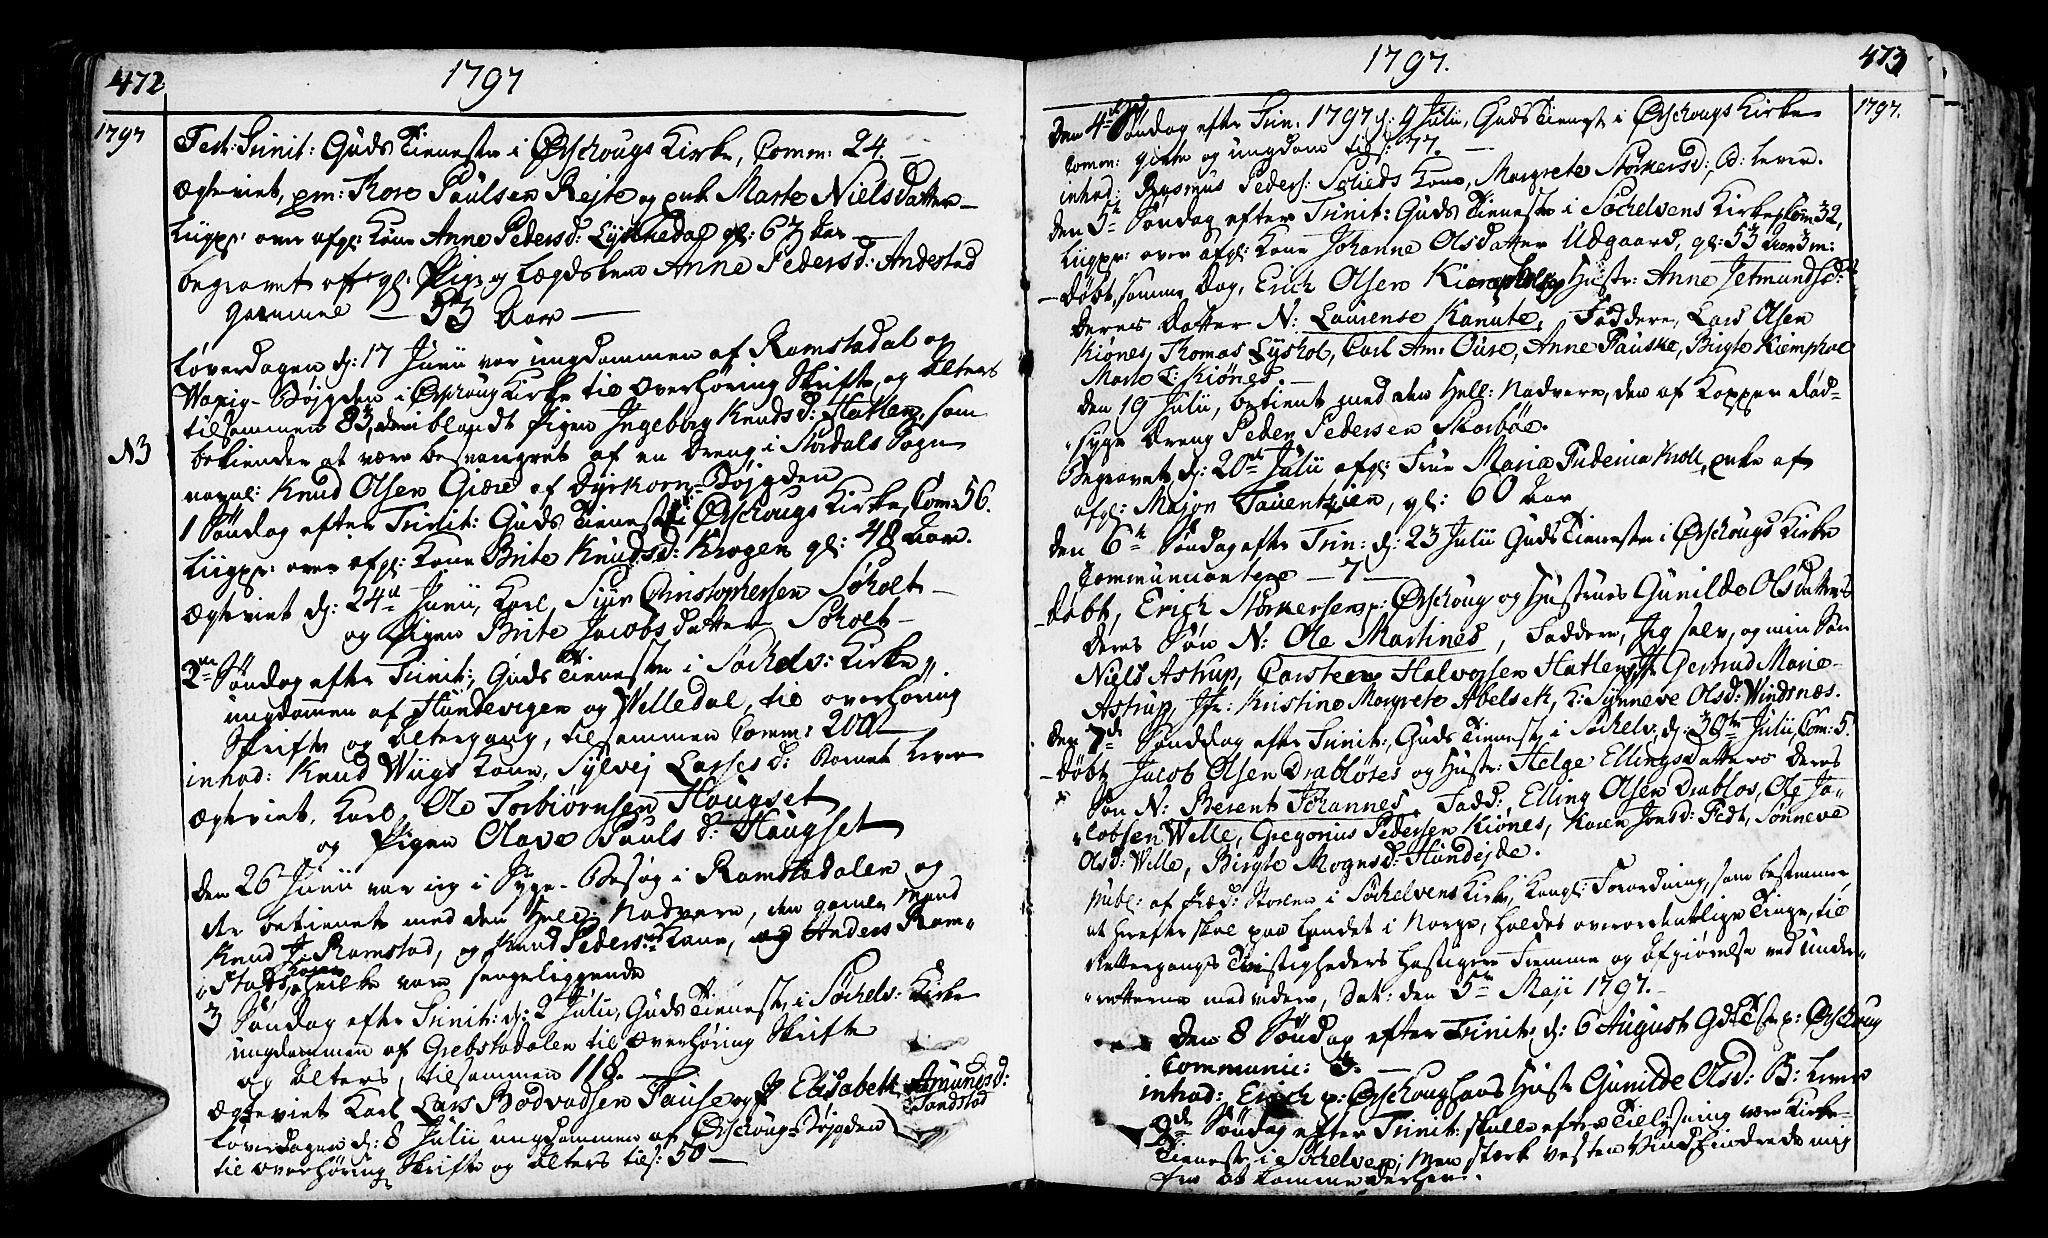 472
1797
1797
Fest: Trinit: Guds Tieneste i Ørschougs Kirke, Comm: 24. —
Ægteviet, pm: Thore Paulsen Rejte og enke Marte NielsDatter —
Liigpr: over afg: Kone Anne Pedersd: Lykkedal gl: 63 Aar —
begravet eft gl: Pige og Lægdslem Anne Pedersd: Andestad
gammel — 53 Aar —
Løverdagen d: 17 Junii var ungdommen af Ramstadal og
Waxig-Bøjgden i Ørschoug Kirke til Overhøring Skrifte, og Alters
tilsammen 83, deriblandt Pigen Ingeborg Knudsd: Hatlen, som
N3
bekiender at være besvangret af en Dreng i Stordals Sogn
navnl: Knud Olsen Giære af Dyrkorn-Bøjgden
1 Søndag efter Trinit: Guds Tieneste i Ørschougs Kirke, Com: 56.
Liigpr: over afg: Kone Brite Knudsd: Krogen gl: 48 Aar.
Ægteviet d: 24de Junii, Karl, Siur Christophersen Søholt —
og Pigen Brite JacobsDatter Søholt —
2den Søndag efter Trinit:, Guds Tieneste i Søchelv: Kirke,
ungdommen af Hundevigen og Welledal, til overhøring
Skrifte og Altergang, tilsammen Comm: 200 —
inthod: Knud Wiigs Kone, Sylvej Lassesd: Barnet lever
Ægteviet, Karl Ole Torbiørnsen Haugset
og Pigen Olave Paulsd: Haugset
Den 26 Junii var jeg i Syge-Besøg i Ramstadalen og
der betienet med den Hell: Nadvere, den gamle Mand
Knud J: Ramstad, og Knud Peders Kone, og Anders Ram-
stads Kone hvilke vare sengeliggende
3 Søndag efter Trinit: d: 2 Julii, Guds Tieneste, i Søchelv: Kirke
ungdommen af Grebstadalen til Overhøring Skrifte
og Alters, tilsammen 118.
Ægteviet Karl Lars Bodvadsen Fause og P Elisabeth Amundsd:
Tandstad
Løverdagen d: 8 Julii ungdommen af Ørschoug-Bøjgden
til Overhøring Skrifte og Alters tils: 50 —
1797.
473
1797.
Den 4de Søndag efter Trin. 1797 d: 9 Julii, Guds Tieneste i Ørschougs Kirke
Comm: givte og ungdom tils: 77. —
inthod: Rasmus Peders: Solieds Kone, Margrete Størkersd: B: lever.
Den 5te Søndag efter Trinit: Guds Tieneste i Søchelvens Kirke, Com: 32,
Liigpr: over afg: Kone Johanne Olsdatter Udgaard, gl: 53 Aar 3 m:
— Døbt samme Dag, Erich Olsen Kiempholg Hustr: Anne Jetmundsd:
Deres Datter N: Laurense Kanute, Faddere, Lars Olsen
Kiønes, Thomas Lyshol, Carl Am: Oure, Anne Pauske, Birgte Kiemphol
Marte L: Kiønes. —
den 19 Julii, betient med den Hell: Nadvere, den af Kopper død-
syge Dreng Peder Pedersen Skorbøe.
Begravet d: 20de Julii afg: Frue Maria Puderia Kroll, enke af
afg: Major Tauentzien, gl: 60 Aar
den 6te Søndag efter Trin: d: 23 Julii Guds Tieneste i Ørschougs Kirke
Communicantere — 7 —
— Døbt, Erich Størkersen p: Ørschoug og Hustrues Gunilde Olsdatters
deres Søn N: Ole Martines, Faddere, Jeg selv, og min Søn
Niels Astrup, Carsten Halvorsen Hatlen, Jfr Gertrud Marie
Astrup, Jfr: Kristine Margrete Abelseth, L: Synneve Olsd: Windsnæs.
Den 7de Sønddag efter Trinit:, Guds Tieneste, i Søchelv: d: 30te Julii, Com: 5.
— Døbt Jacob Olsen Drabløses og Hustr: Helge Ellingsdatters deres
Søn N: Berent Johannes, Fadd: Elling Olsen Drabløs, Ole Ja-
cobsen Welle, Gregorius Pedersen Kiønes, Karen Jonsd: Fedt, Sønneve
Olsd: Welle, Birgte Mognsd: Hundejde.
Publ: af Præd: Stolen i Søchelvens Kirke, Kongl: Forordning, som bestemmer
at herefter skal paa Landet i Norge, holdes overordentlige Tinge, til
Rettergangs Tvistigheders hastigere Fremme og Afgiørelse ved Under-
retterne med videre, Dat: den 5te Maji 1797. —
Den 8 Søndag efter Trinit: d: 6 August G:T: p: Ørschoug
Communic: 3. —
inthod: Erich p: Ørschoug hans Hustr Gunilde Olsd: B: lever
9de Søndag efter Trinit: skulle efter Tillysning være Kirke-
Tieneste i Søchelven; Men stærk vesten Vind hindrede mig
fra at komme derhen.